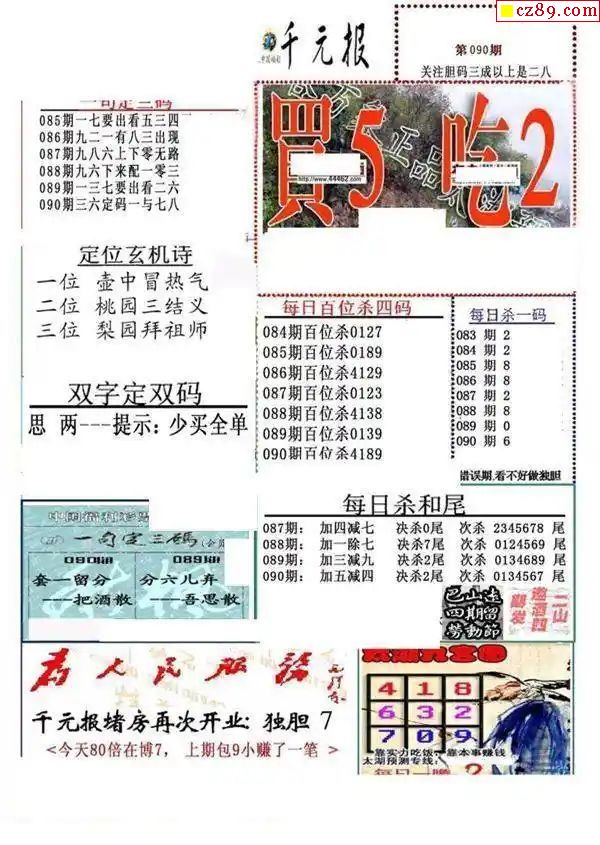 cz89.com
千元报
第090期
关注胆码三成以上是二八
一句定三码
085期一七要出看五三四
086期九二一有八三出现
087期九八六上下零无路
088期九六下来配一零三
089期一三七要出看二六
090期三六定码一与七八
買5 吃2
http://www.44462.com
定位玄机诗
一位 壶中冒热气
二位 桃园三结义
三位 梨园拜祖师
双字定双码
思 两---提示:少买全单
每日百位杀四码
084期百位杀0127
085期百位杀0189
086期百位杀4129
087期百位杀0123
088期百位杀4138
089期百位杀0139
090期百位杀4189
每日杀一码
083 期 2
084 期 2
085 期 8
086 期 8
087 期 2
088 期 8
089 期 0
090 期 6
错误期,看不好做独胆
每日杀和尾
087期: 加四减七 决杀0尾 次杀 2345678 尾
088期: 加一除七 决杀7尾 次杀 0124569 尾
089期: 加三减九 决杀2尾 次杀 0134689 尾
090期: 加五减四 决杀2尾 次杀 0134567 尾
中国福利彩票
一句定三码
090期 089期
套一留分 分六儿弃
---把酒散 ---吾思散
巴山连
四期留
劳動節
二山
邀酒四
為人民服務
千元报堵房再次开业:独胆 7
<今天80倍在博7, 上期包9小赚了一笔 >
太湖九宫图
4 1 8
6 3 2
7 0 9
靠实力吃饭,靠本事赚钱
太湖预测专线:
每日一赠 2